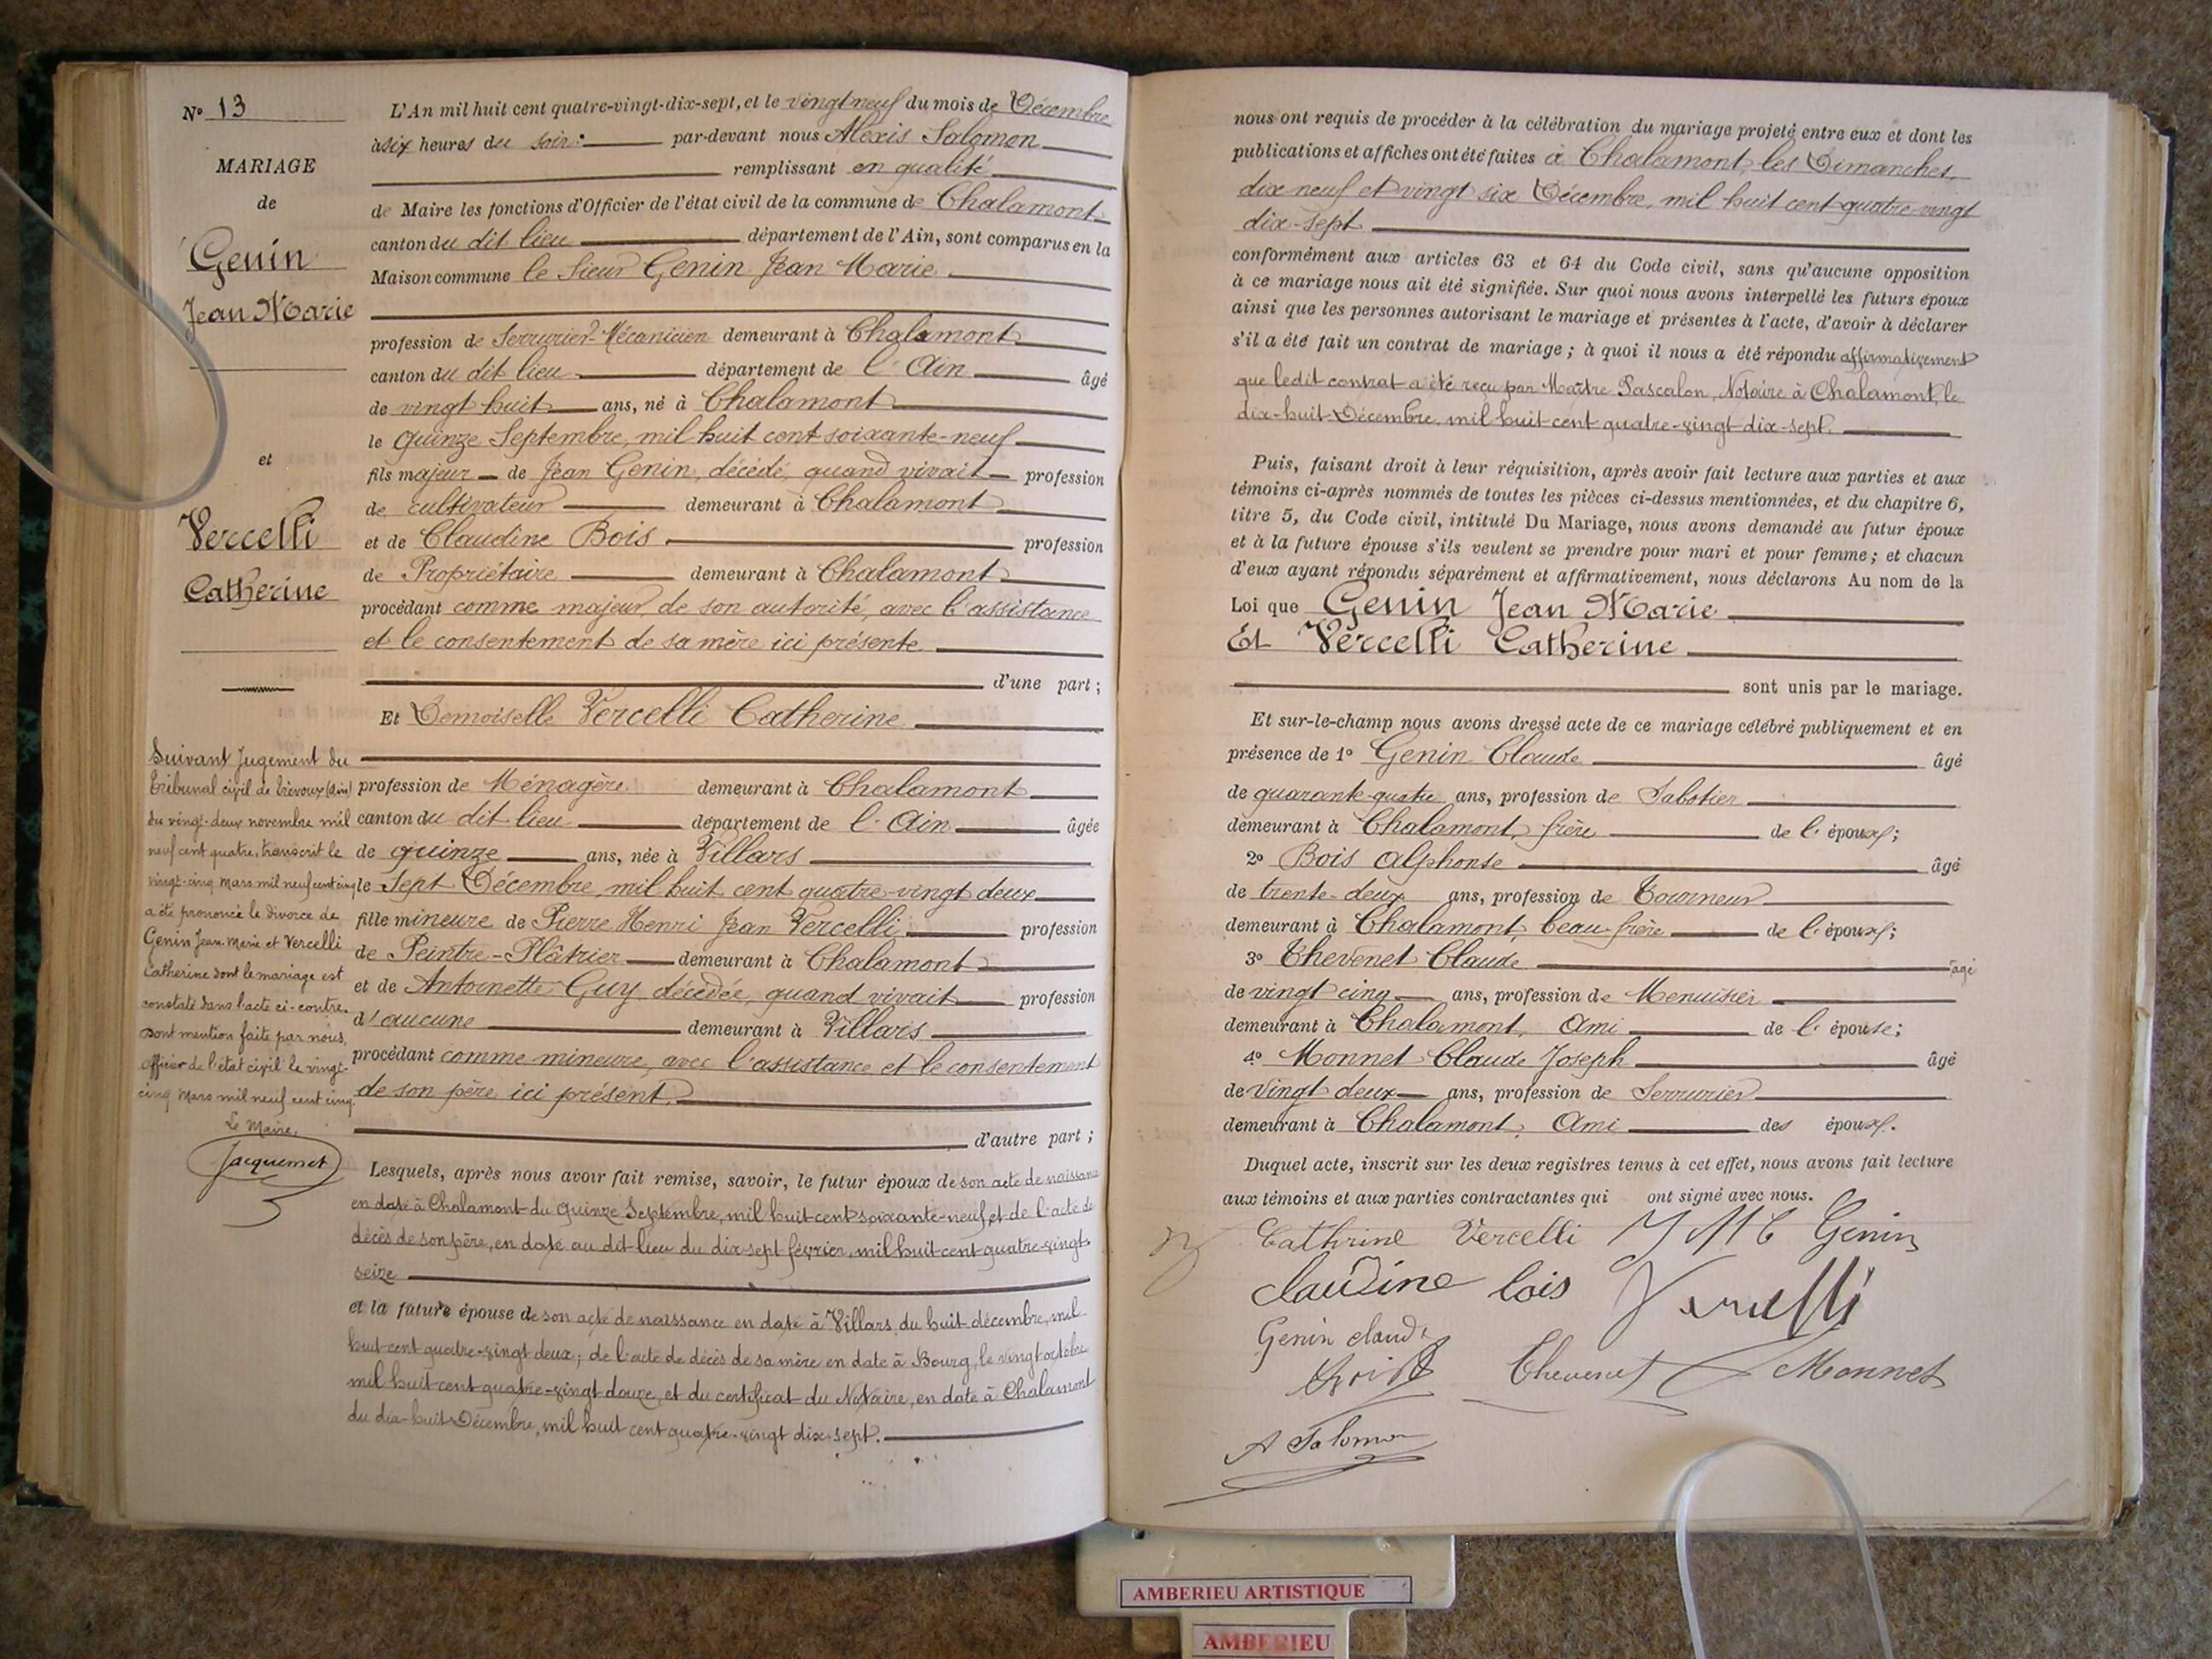 N° 13
MARIAGE
de
Genin
Jean Marie
et
Vercelli
Catherine
Suivant Jugement du
tribunal civil de Trévoux (Ain)
du vingt-deux novembre mil
neuf cent quatre, transcrit le
vingt-cinq Mars mil neuf cent cinq
a été prononcé le divorce de
Genin Jean-Marie et Vercelli
Catherine dont le mariage est
constaté dans l'acte ci-contre.
dont mention faite par nous,
officier de l'état civil le vingt-
cinq Mars mil neuf cent cinq.
Le Maire,
Jacquemet
L'An mil huit cent quatre-vingt-dix-sept, et le vingt neuf du mois de Décembre
à six heures du soir : par-devant nous Alexis Salomon
remplissant en qualité
de Maire les fonctions d'Officier de l'état civil de la commune de Chalamont
canton du dit lieu département de l'Ain, sont comparus en la
Maison commune le Sieur Genin Jean Marie
profession de Serrurier-Mécanicien demeurant à Chalamont
canton du dit lieu département de l'Ain âgé
de vingt huit ans, né à Chalamont
le quinze Septembre, mil huit cent soixante-neuf
fils majeur de Jean Genin, décédé, quand vivait profession
de cultivateur demeurant à Chalamont
et de Claudine Bois profession
de Propriétaire demeurant à Chalamont
procédant comme majeur, de son autorité, avec l'assistance
et le consentement de sa mère ici présente
d'une part ;
Et Demoiselle Vercelli Catherine
profession de Ménagère demeurant à Chalamont
canton du dit-lieu département de l'Ain âgée
de quinze ans, née à Villars
le Sept Décembre, mil huit cent quatre-vingt deux
fille mineure de Pierre Henri Jean Vercelli, profession
de Peintre-Plâtrier demeurant à Chalamont
et de Antoinette Guy décédée, quand vivait profession
d'aucune demeurant à Villars
procédant comme mineure, avec l'assistance et le consentement
de son père ici présent.
d'autre part ;
Lesquels, après nous avoir fait remise, savoir, le futur époux de son acte de naissance
en date à Chalamont du quinze Septembre, mil huit cent soixante-neuf et de l'acte de
décès de son père, en date au dit lieu du dix-sept février, mil huit cent quatre-vingt-
seize
et la future épouse de son acte de naissance en date à Villars, du huit décembre, mil
huit cent quatre-vingt deux ; de l'acte de décès de sa mère en date à Bourg, le vingt octobre
mil huit cent quatre-vingt douze, et du certificat du Notaire, en date à Chalamont
du dix-huit Décembre, mil huit cent quatre-vingt dix-sept.
nous ont requis de procéder à la célébration du mariage projeté entre eux et dont les
publications et affiches ont été faites à Chalamont, les Dimanches,
dix neuf et vingt six Décembre, mil huit cent quatre-vingt
dix-sept
conformément aux articles 63 et 64 du Code civil, sans qu'aucune opposition
à ce mariage nous ait été signifiée. Sur quoi nous avons interpellé les futurs époux
ainsi que les personnes autorisant le mariage et présentes à l'acte, d'avoir à déclarer
s'il a été fait un contrat de mariage ; à quoi il nous a été répondu affirmativement
que ledit contrat a été reçu par Maître Pascalon, Notaire à Chalamont, le
dix-huit Décembre, mil huit cent quatre-vingt dix-sept.
Puis, faisant droit à leur réquisition, après avoir fait lecture aux parties et aux
témoins ci-après nommés de toutes les pièces ci-dessus mentionnées, et du chapitre 6,
titre 5, du Code civil, intitulé Du Mariage, nous avons demandé au futur époux
et à la future épouse s'ils veulent se prendre pour mari et pour femme ; et chacun
d'eux ayant répondu séparément et affirmativement, nous déclarons Au nom de la
Loi que Genin Jean Marie
Et Vercelli Catherine
sont unis par le mariage.
Et sur-le-champ nous avons dressé acte de ce mariage célébré publiquement et en
présence de 1° Genin Claude âgé
de quarante-quatre ans, profession de Sabotier
demeurant à Chalamont, frère de l'époux ;
2° Bois Alphonse âgé
de trente-deux ans, profession de Tourneur
demeurant à Chalamont, beau-frère de l'époux ;
3° Thevenet Claude âgé
de vingt cinq ans, profession de Menuisier
demeurant à Chalamont, Ami de l'épouse ;
4° Monnet Claude Joseph âgé
de vingt deux ans, profession de Serrurier
demeurant à Chalamont, Ami des époux.
Duquel acte, inscrit sur les deux registres tenus à cet effet, nous avons fait lecture
aux témoins et aux parties contractantes qui ont signé avec nous.
Cathrine Vercelli Genin
Claudine bois Vercelli
Genin claude
Thevenet Monnet
A Salomon
AMBERIEU ARTISTIQUE
AMBERIEU